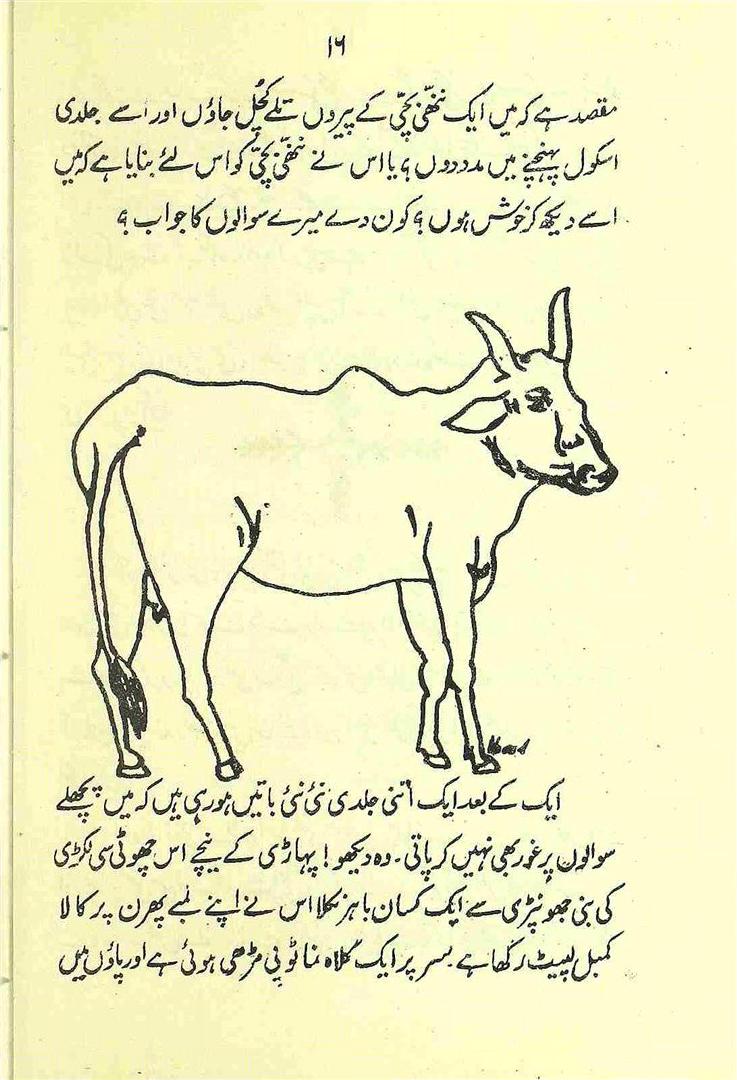 ۱۶
مقصد ہے کہ میں ایک ننھّی بچّی کے پیروں تلے کُچل جاؤں اور اسے جلدی
اسکول پہنچنے میں مدد دوں ؟ یا اس نے ننھّی بچّی کو اس لئے بنایا ہے کہ میں
اسے دیکھ کر خوش ہوں ؟ کون دے میرے سوالوں کا جواب ؟
ایک کے بعد ایک اتنی جلدی نئی نئی باتیں ہو رہی ہیں کہ میں پچھلے
سوالوں پر غور بھی نہیں کر پاتی ۔ وہ دیکھو ! پہاڑی کے نیچے اس چھوٹی سی لکڑی
کی بنی جھونپڑی سے ایک کسان باہر نکلا اس نے اپنے لمبے پھرن پر کالا
کمبل لپیٹ رکھا ہے سر پر ایک کلاہ نما ٹوپی مڑھی ہوئی ہے اور پاؤں میں